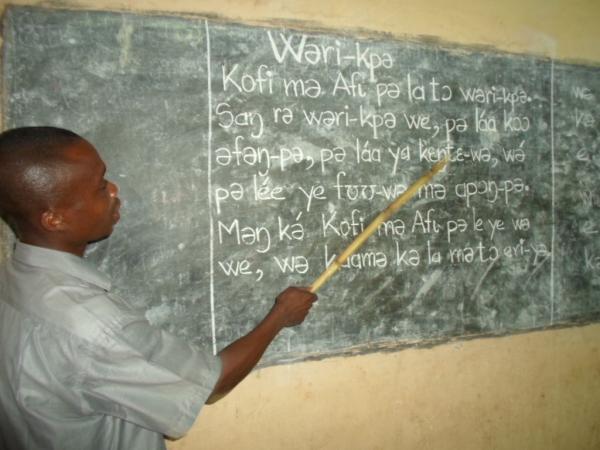 Wəri-kpə
Kofi mə Afɩ pə la tɔ wəri-kpə.
Saŋ rə wəri-kpə we, pə láa kɔɔ
əfəŋ-pə, pə láa ya kentɛ-wə, wá
pə lée ye fʊʊ-wə mə apɔŋ-pə.
Məŋ ká Kofi mə Afɩ pə le ye wə
we, wə kuamə kə la mə tɔ eri-yə.
we
kə
e
e
kə